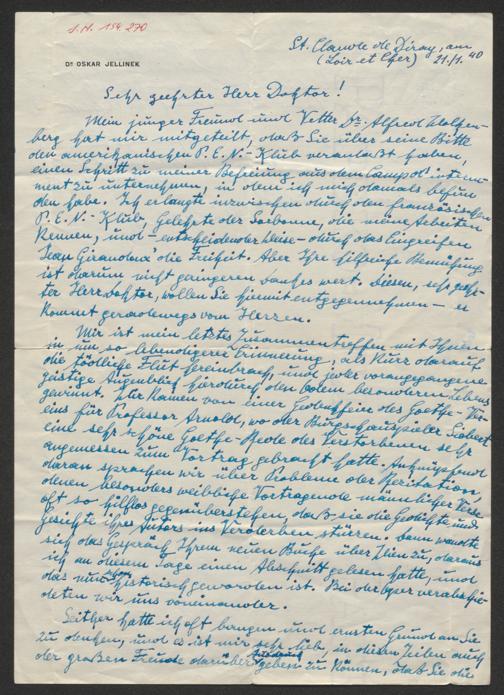 I.N. 194.270
St. Claude de Diray, am
(Loir et Cher) 21/1. 40
Dr OSKAR JELLINEK
Sehr geehrter Herr Doktor!
Mein junger Freund und Vetter Dr. Alfred Wolfen-
berg hat mir mitgeteilt, daß Sie über seine Bitte
den amerikanischen P.E.N.-Klub veranlaßt haben,
einen Schritt zu meiner Befreiung aus dem Camp d'interne-
ment zu unternehmen, in dem ich mich damals befun
den habe. Ich erlangte inzwischen durch den französischen
P.E.N.-Klub, Gelehrte der Sorbonne, die meine Arbeiten
kennen, und – entscheidender Weise – durch das Eingreifen
Jean Giraudoux die Freiheit. Aber Ihre hilfreiche Bemühung
ist darum nicht geringeren Dankes wert. Diesen, sehr geehr-
ter Herr Doktor, wollen Sie hiemit entgegennehmen – er
kommt geradewegs vom Herzen.
Mir ist mein letztes Zusammentreffen mit Ihnen
in um so lebendigerer Erinnerung, als kurz darauf
die tödliche Flut hereinbrach und jeder vorangegangene
geistige Augenblick hiedurch den Odem besonderen Lebens
gewinnt. Wir kamen von einer Gedenkfeier des Goethe-Ver-
eins für Professor Arnold, wo der Burgschauspieler Siebert
eine sehr schöne Goethe-Rede des Verstorbenen sehr
angemessen zum Vortrag gebracht hatte. Anknüpfend
daran sprachen wir über Probleme der Rezitation,
denen besonders weibliche Vortragende männlicher Verse
oft so hilflos gegenüberstehen, daß sie die Gedichte und
Gesichte ihres Autors ins Verderben stürzen. Dann wandte
sich das Gespräch Ihrem neuen Buche über Wien zu, daraus
ich an diesem Tage einen Abschnitt gelesen hatte, und
das nun schon historisch geworden ist. Bei der Oper verabschie-
deten wir uns voneinander.
Seither hatte ich oft bangen und ernsten Grund an Sie
zu denken, und es ist mir sehr lieb, in diesen Zeilen auch
der großen Freude darüber Ausdruck geben zu können, daß Sie die